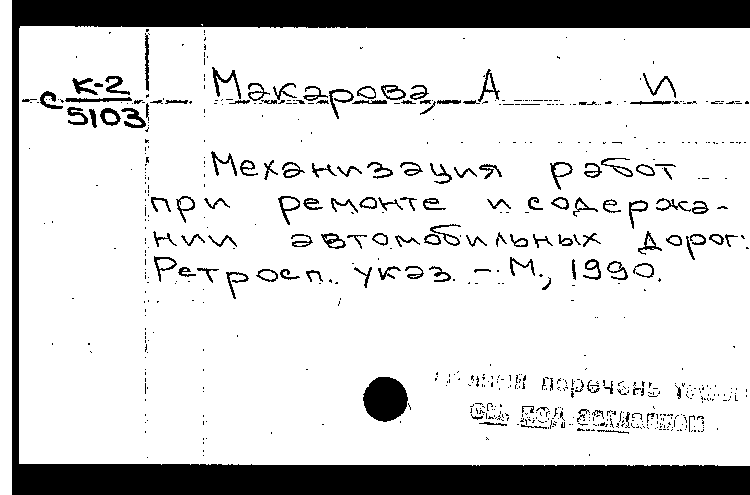 К-2
с 5103
Макарова, А И
Механизация работ
при ремонте и содержа-
нии автомобильных дорог:
Ретросп. указ. - М., 1990.
перечень
см. под заглавием